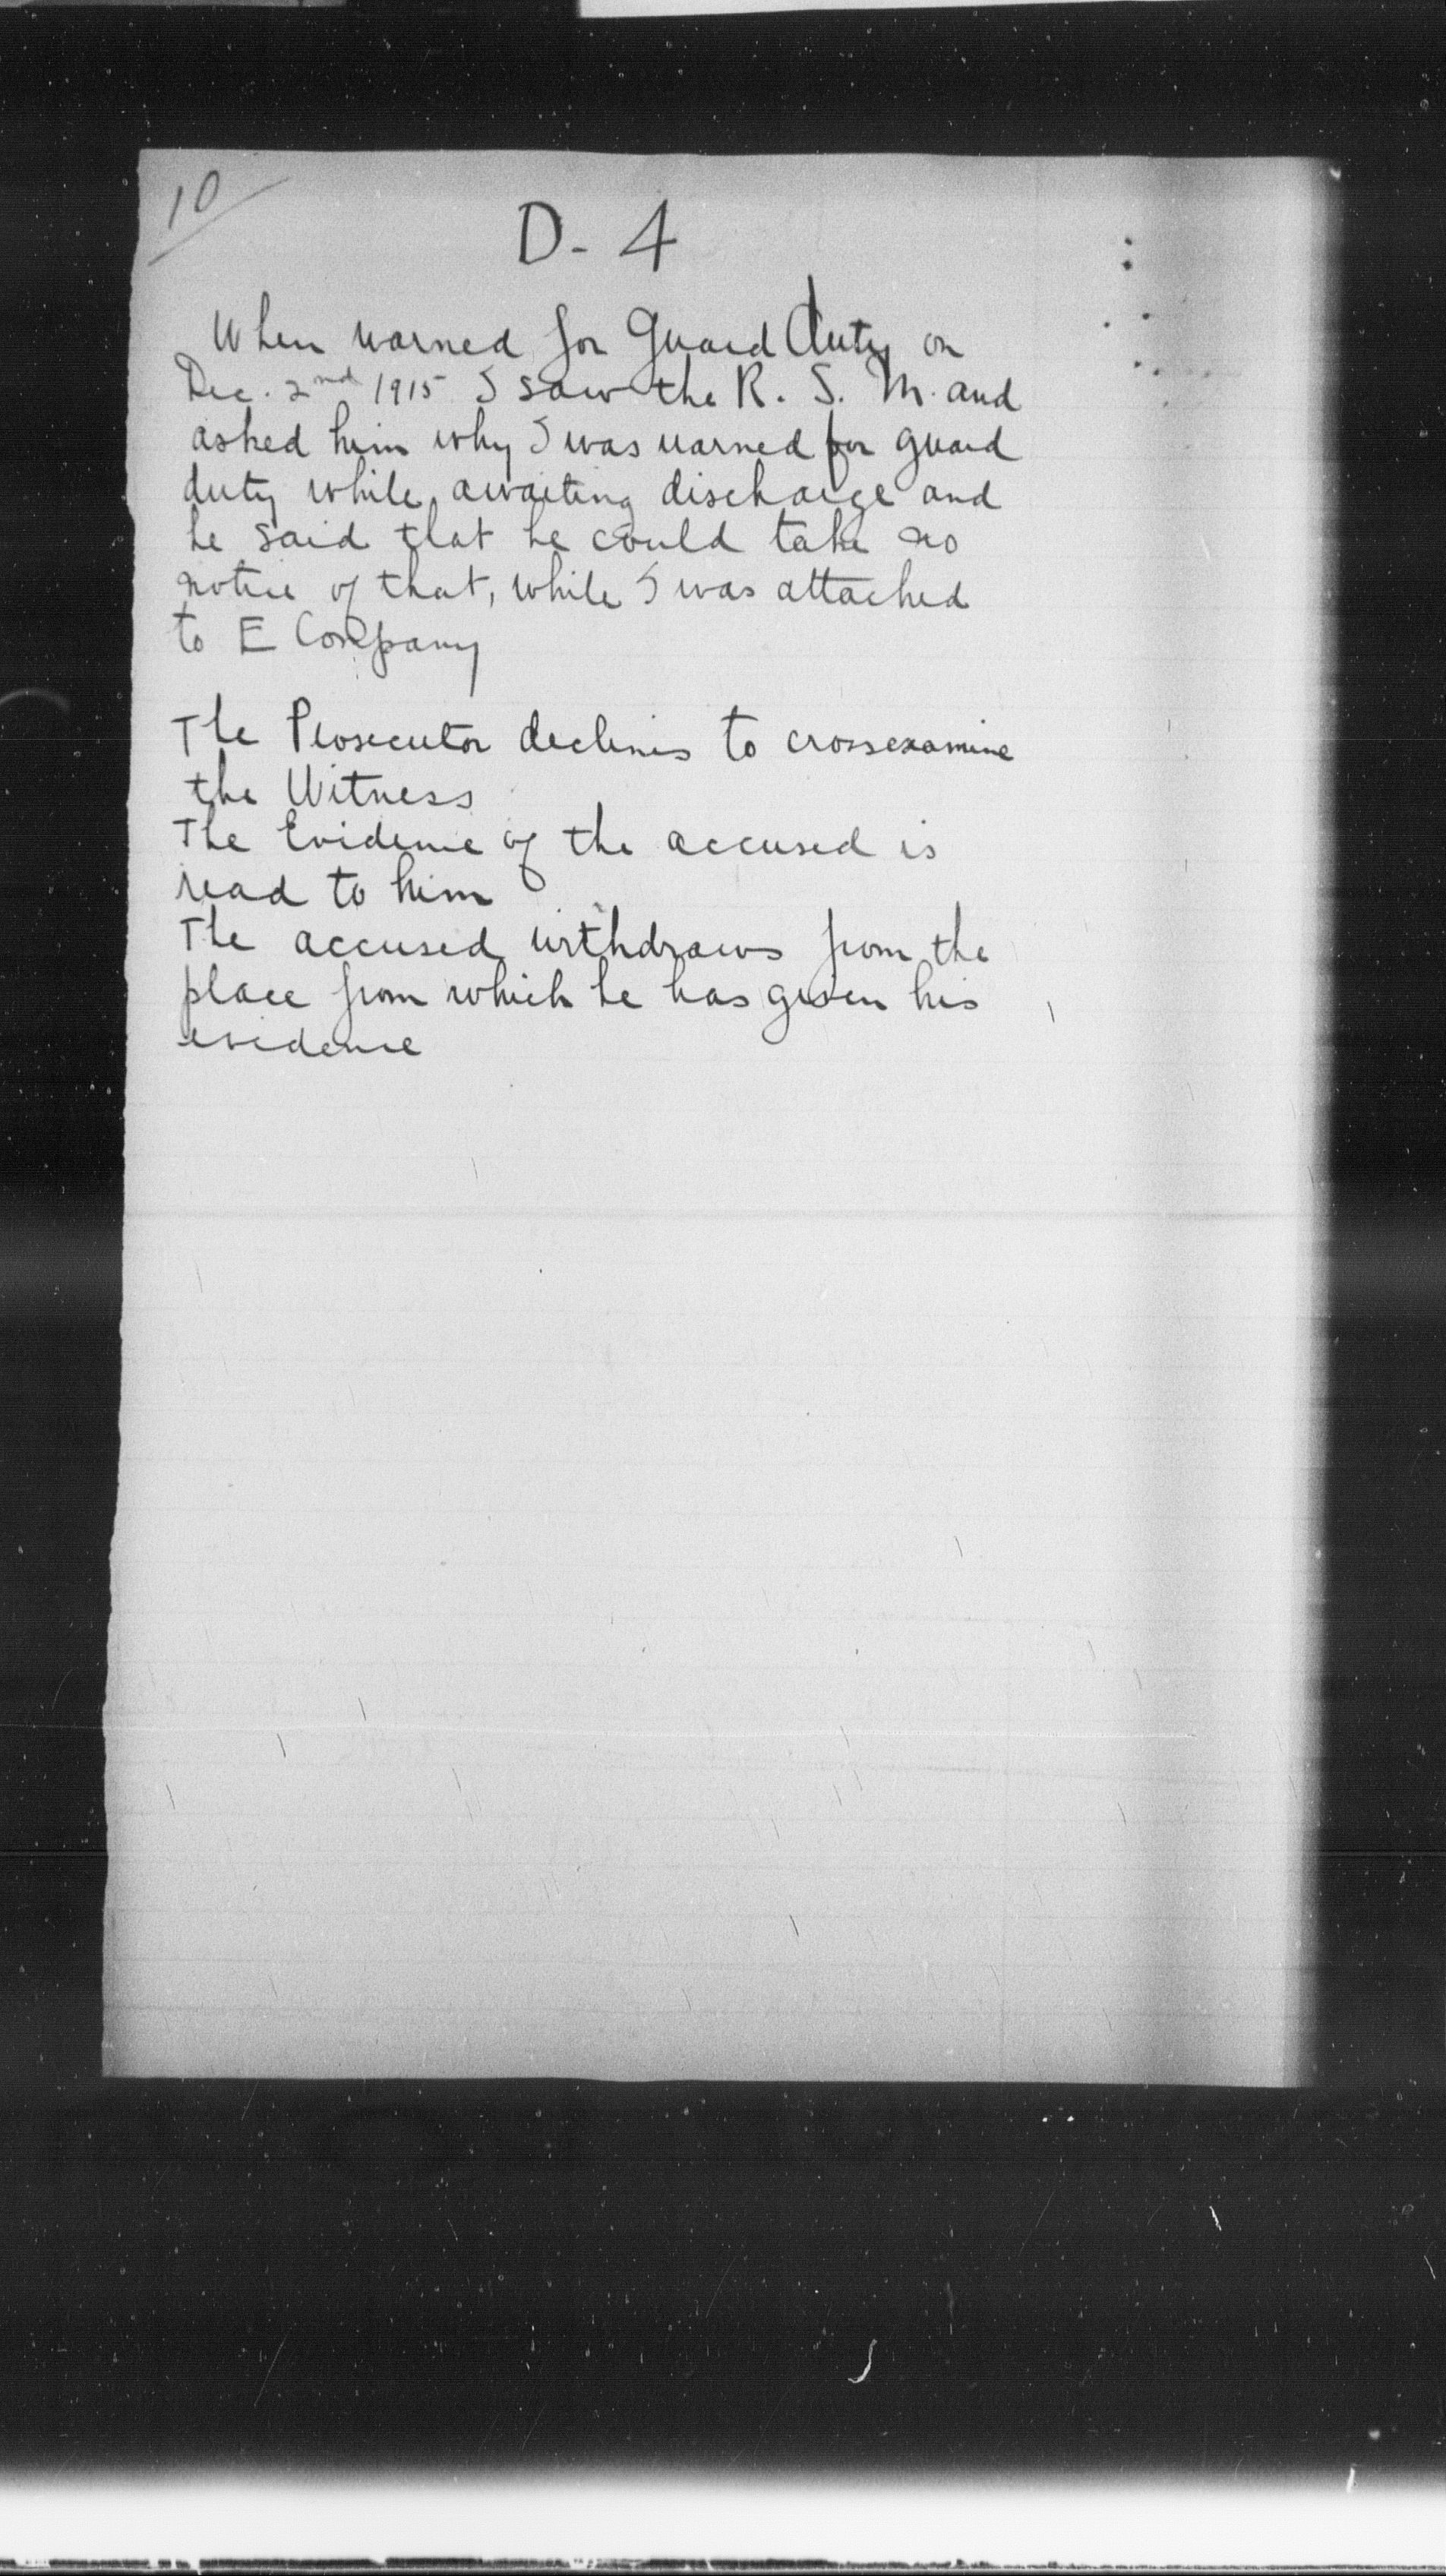 10
D - 4
When warned for Guard Duty on
Dec. 2nd 1915 I saw the R. S. M. and
asked him why I was warned for guard
duty while awaiting discharge and
he said that he could take no
notice of that, while I was attached
to E Company
The Prosecutor declines to crossexamine
the Witness
The Evidence of the accused is
read to him
The accused withdraws from the
place from which he has given his
evidence